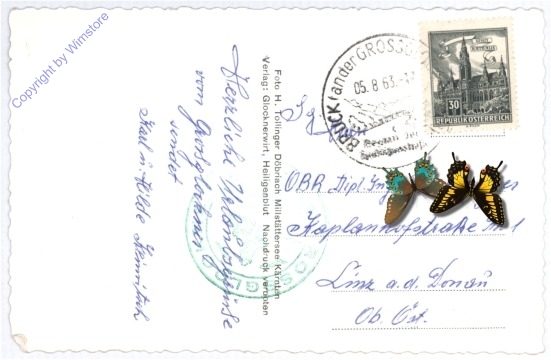 Copyright by Wimstore
Herzliche Urlaubsgrüße
vom Großglockner
sendet
Karl u. Hilde
Foto H. Tollinger Döbriach Millstättersee Kärnten
Verlag: Glocknerwirt, Heiligenblut Nachdruck verboten
BRUCK (an der GROSSGL
05. 8 63.-17
30
REPUBLIK ÖSTERREICH
OBR Dipl. Ing
Kaplanhofstraße nr 1
Linz a. d. Donau
Ob. Öst.